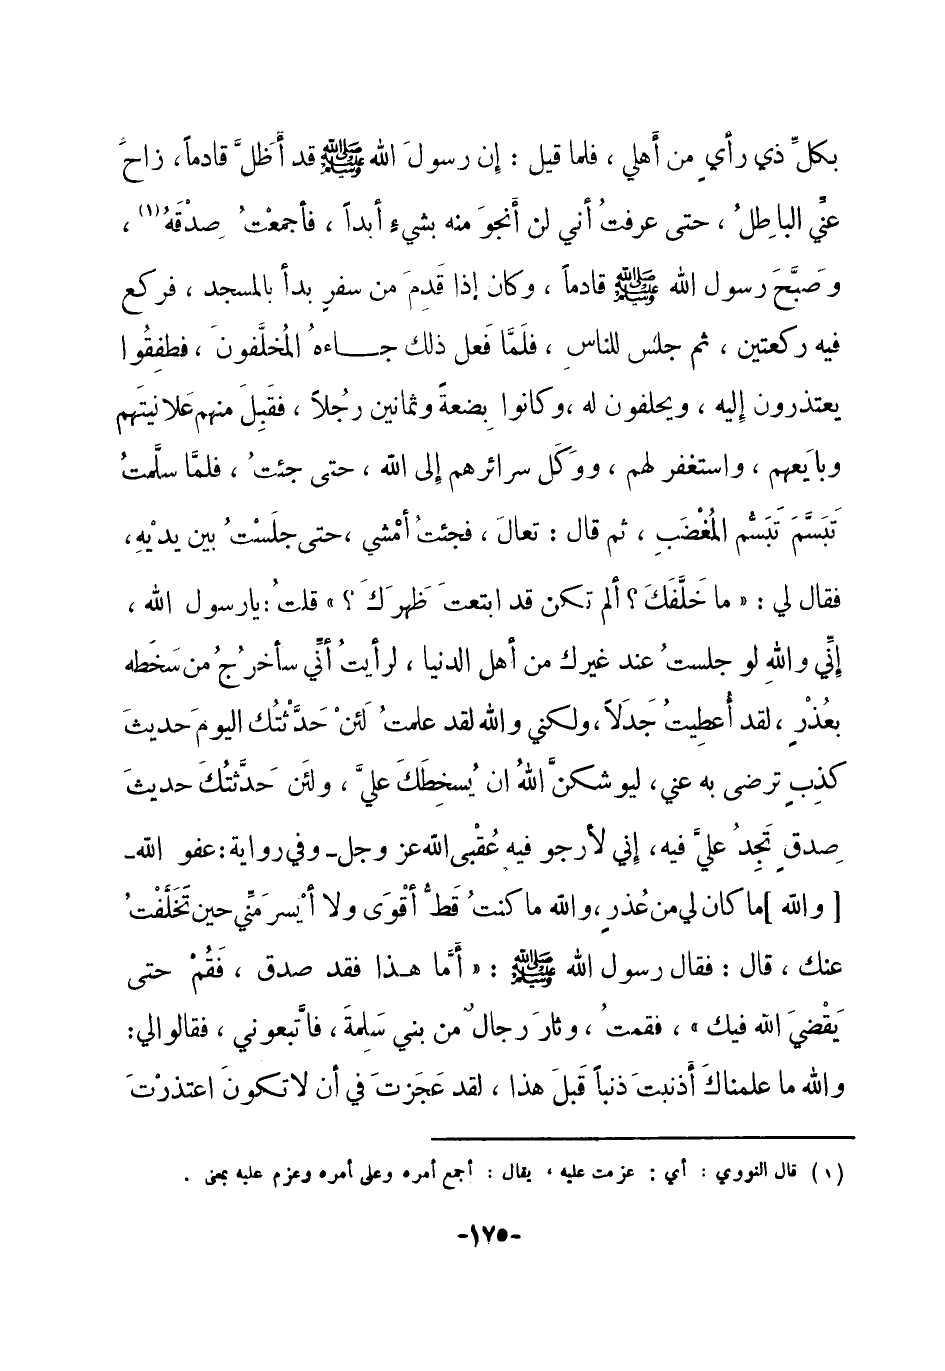 بكلِّ ذي رأيٍ من أَهلي ، فلما قيل : إن رسولَ الله ﷺ قد أَظلَّ قادماً، زاحَ
عنِّي الباطلُ ، حتى عرفتُ أني لن أَنجوَ منه بشيءٍ أبداً ، فأجمعْتُ صدْقَهُ(١) ،
وصَبَّحَ رسول الله ﷺ قادماً ، وكان إذا قَدِمَ من سفرٍ بدأ بالمسجد ، فركع
فيه ركعتين ، ثم جلس للناسِ ، فلَمَّا فَعل ذلك جـــاءهُ المُخلَّفونَ ، فطفِقُوا
يعتذرون إليه ، ويحلفون له ،وكانوا بِضعةً وثمانين رجُلاً ، فقَبِلَ منهم عَلانيتَهم
وبايَعهم ، واستغفر لهم ، ووَكَل سرائرهم إلى الله ، حتى جئتُ ، فلمَّا سلَّمتُ
تَبَسَّمَ تَبَسُّم المُغْضَبِ ، ثم قال : تعالَ ، فجئتُ أَمْشي ،حتى جلَسْتُ بين يديْهِ،
فقال لي : « ما خَلَّفَكَ ؟ ألم تكن قد ابتعتَ ظَهركَ ؟ » قلتُ :يارسول الله ،
إنِّي واللهِ لو جلستُ عند غيرك من أهل الدنيا ، لرأيتُ أنِّي سأخرُجُ من سَخَطه
بعُذْرٍ ، لقد أُعطِيتُ جَدَلاً ،ولكني والله لقد علمتُ لَئنْ حَدَّثْتُك اليومَ حديثَ
كذِبٍ ترضى به عني ، ليوشكنَّ اللهُ ان يُسخِطَكَ عليَّ ، ولئن حَدَّثتُكَ حديثَ
صِدقٍ تَجِدُ عليَّ فيه، إني لأرجو فيه عُقْبى الله عز وجل ـ وفي رواية : عفو الله ـ
[ والله ]ما كان لي من عُذرٍ ،والله ما كنتُ قَطُّ أَقْوَى ولا أيْسر مَنِّي حين تَخَلَّفْتُ
عنك ، قال : فقال رسول الله ﷺ : « أَمَّا هـذا فقد صدق ، فَقُمْ حتى
يَقْضيَ الله فيك » ، فقمتُ ، وثارَ رجالٌ من بني سَلِمةَ ، فاتَّبعوني ، فقالوا لي:
والله ما علمناكَ أَذنبتَ ذنباً قَبلَ هذا ، لقد عَجَزتَ في أن لاتكونَ اعتذرْتَ
(١) قال النووي : أي : عزمت عليه ، يقال : أجمع أمره وعلى أمره وعزم عليه بمعنى .
-١٧٥-